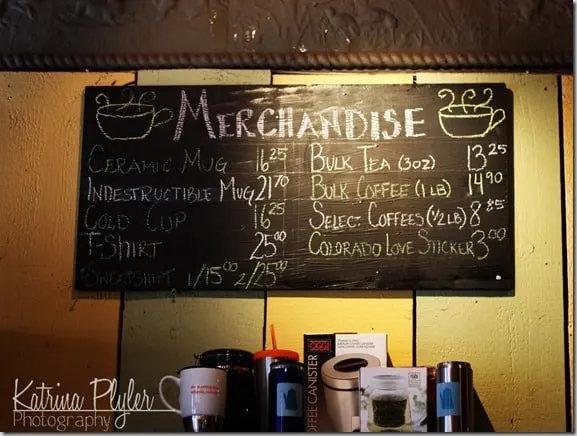 MERCHANDISE
CERAMIC MUG 16 25
INDESTRUCTIBLE MUG 21 70
COLD CUP 16 25
T-SHIRT 25 00
*SWEATSHIRT 1/15 00 2/25 00
BULK TEA (3OZ) 13 25
BULK COFFEE (1 LB) 14 90
SELECT COFFEES (1/2 LB) 8 85
COLORADO LOVE STICKER 3 00
OGGI
COFFEE CANISTER
Katrina Plyler
Photography